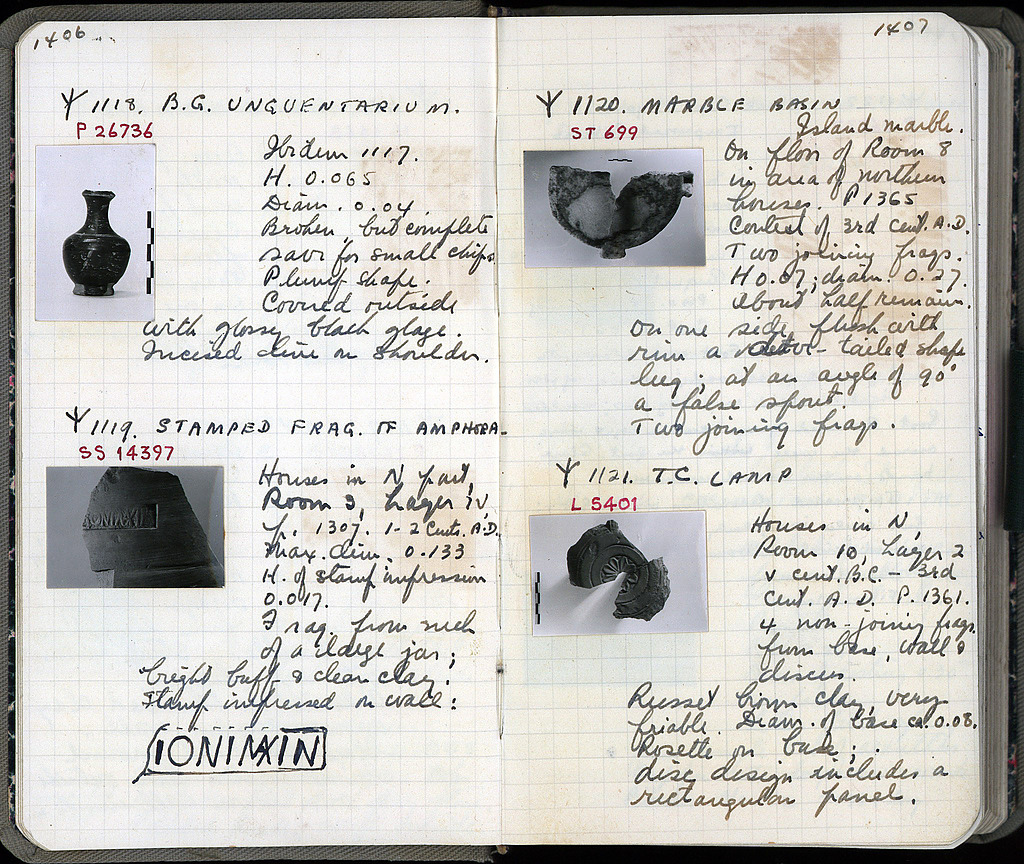 1406
Ψ 1118. B.G. UNGUENTARIUM.
P 26736
Ibidem 1117.
H. 0.065
Diam. 0.04.
Broken, but complete
save for small chips.
Plump shape.
Covered outside
with glossy black glaze.
Incised line on shoulder.
Ψ 1119. STAMPED FRAG. OF AMPHORA.
SS 14397
Houses in N part,
Room 3, Layer IV
p. 1307. 1-2 Cents. A.D.
Max. dim. 0.133
H. of stamp impression
0.017.
Frag. from neck
of a large jar;
bright buff & clean clay.
Stamp impressed on wall:
IONIMXIN
1407
Ψ 1120. MARBLE BASIN
ST 699
Island marble.
On floor of Room 8
in area of northern
houses. P 1365
Context of 3rd cent. A.D.
Two joining frags.
H 0.07; diam. 0.27.
About half remains.
On one side, flush with
rim a tailed shape
lug; at an angle of 90°
a false spout.
Two joining frags.
Ψ 1121. T.C. LAMP
L 5401
Houses in N,
Room 10, Layer 2
v cent. B.C. – 3rd
cent. A.D. P. 1361.
4 non-joining frags.
from base, wall &
discus.
Russet brown clay, very
friable. Diam. of base ca. 0.08.
Rosette on base;
disc design includes a
rectangular panel.